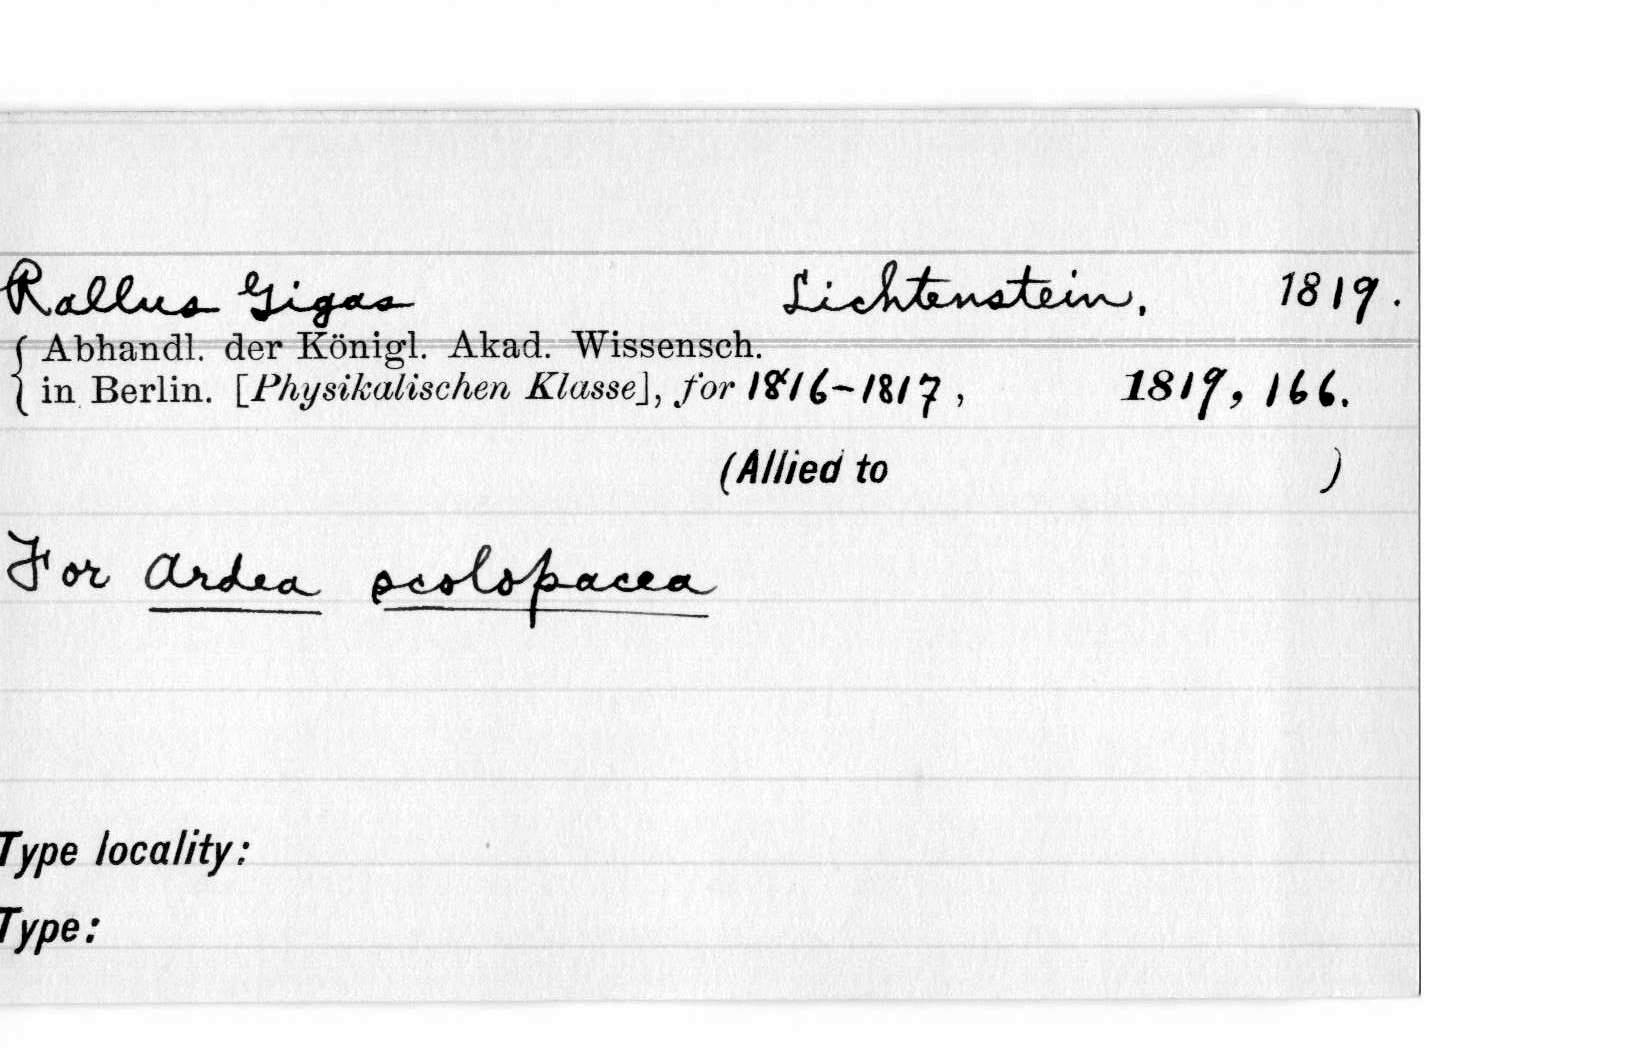 Rallus Gigas Lichtenstein, 1819.
{ Abhandl. der Königl. Akad. Wissensch.
in Berlin. [Physikalischen Klasse], for 1816-1817, 1819, 166.
(Allied to )
For Ardea scolopacea
Type locality:
Type: